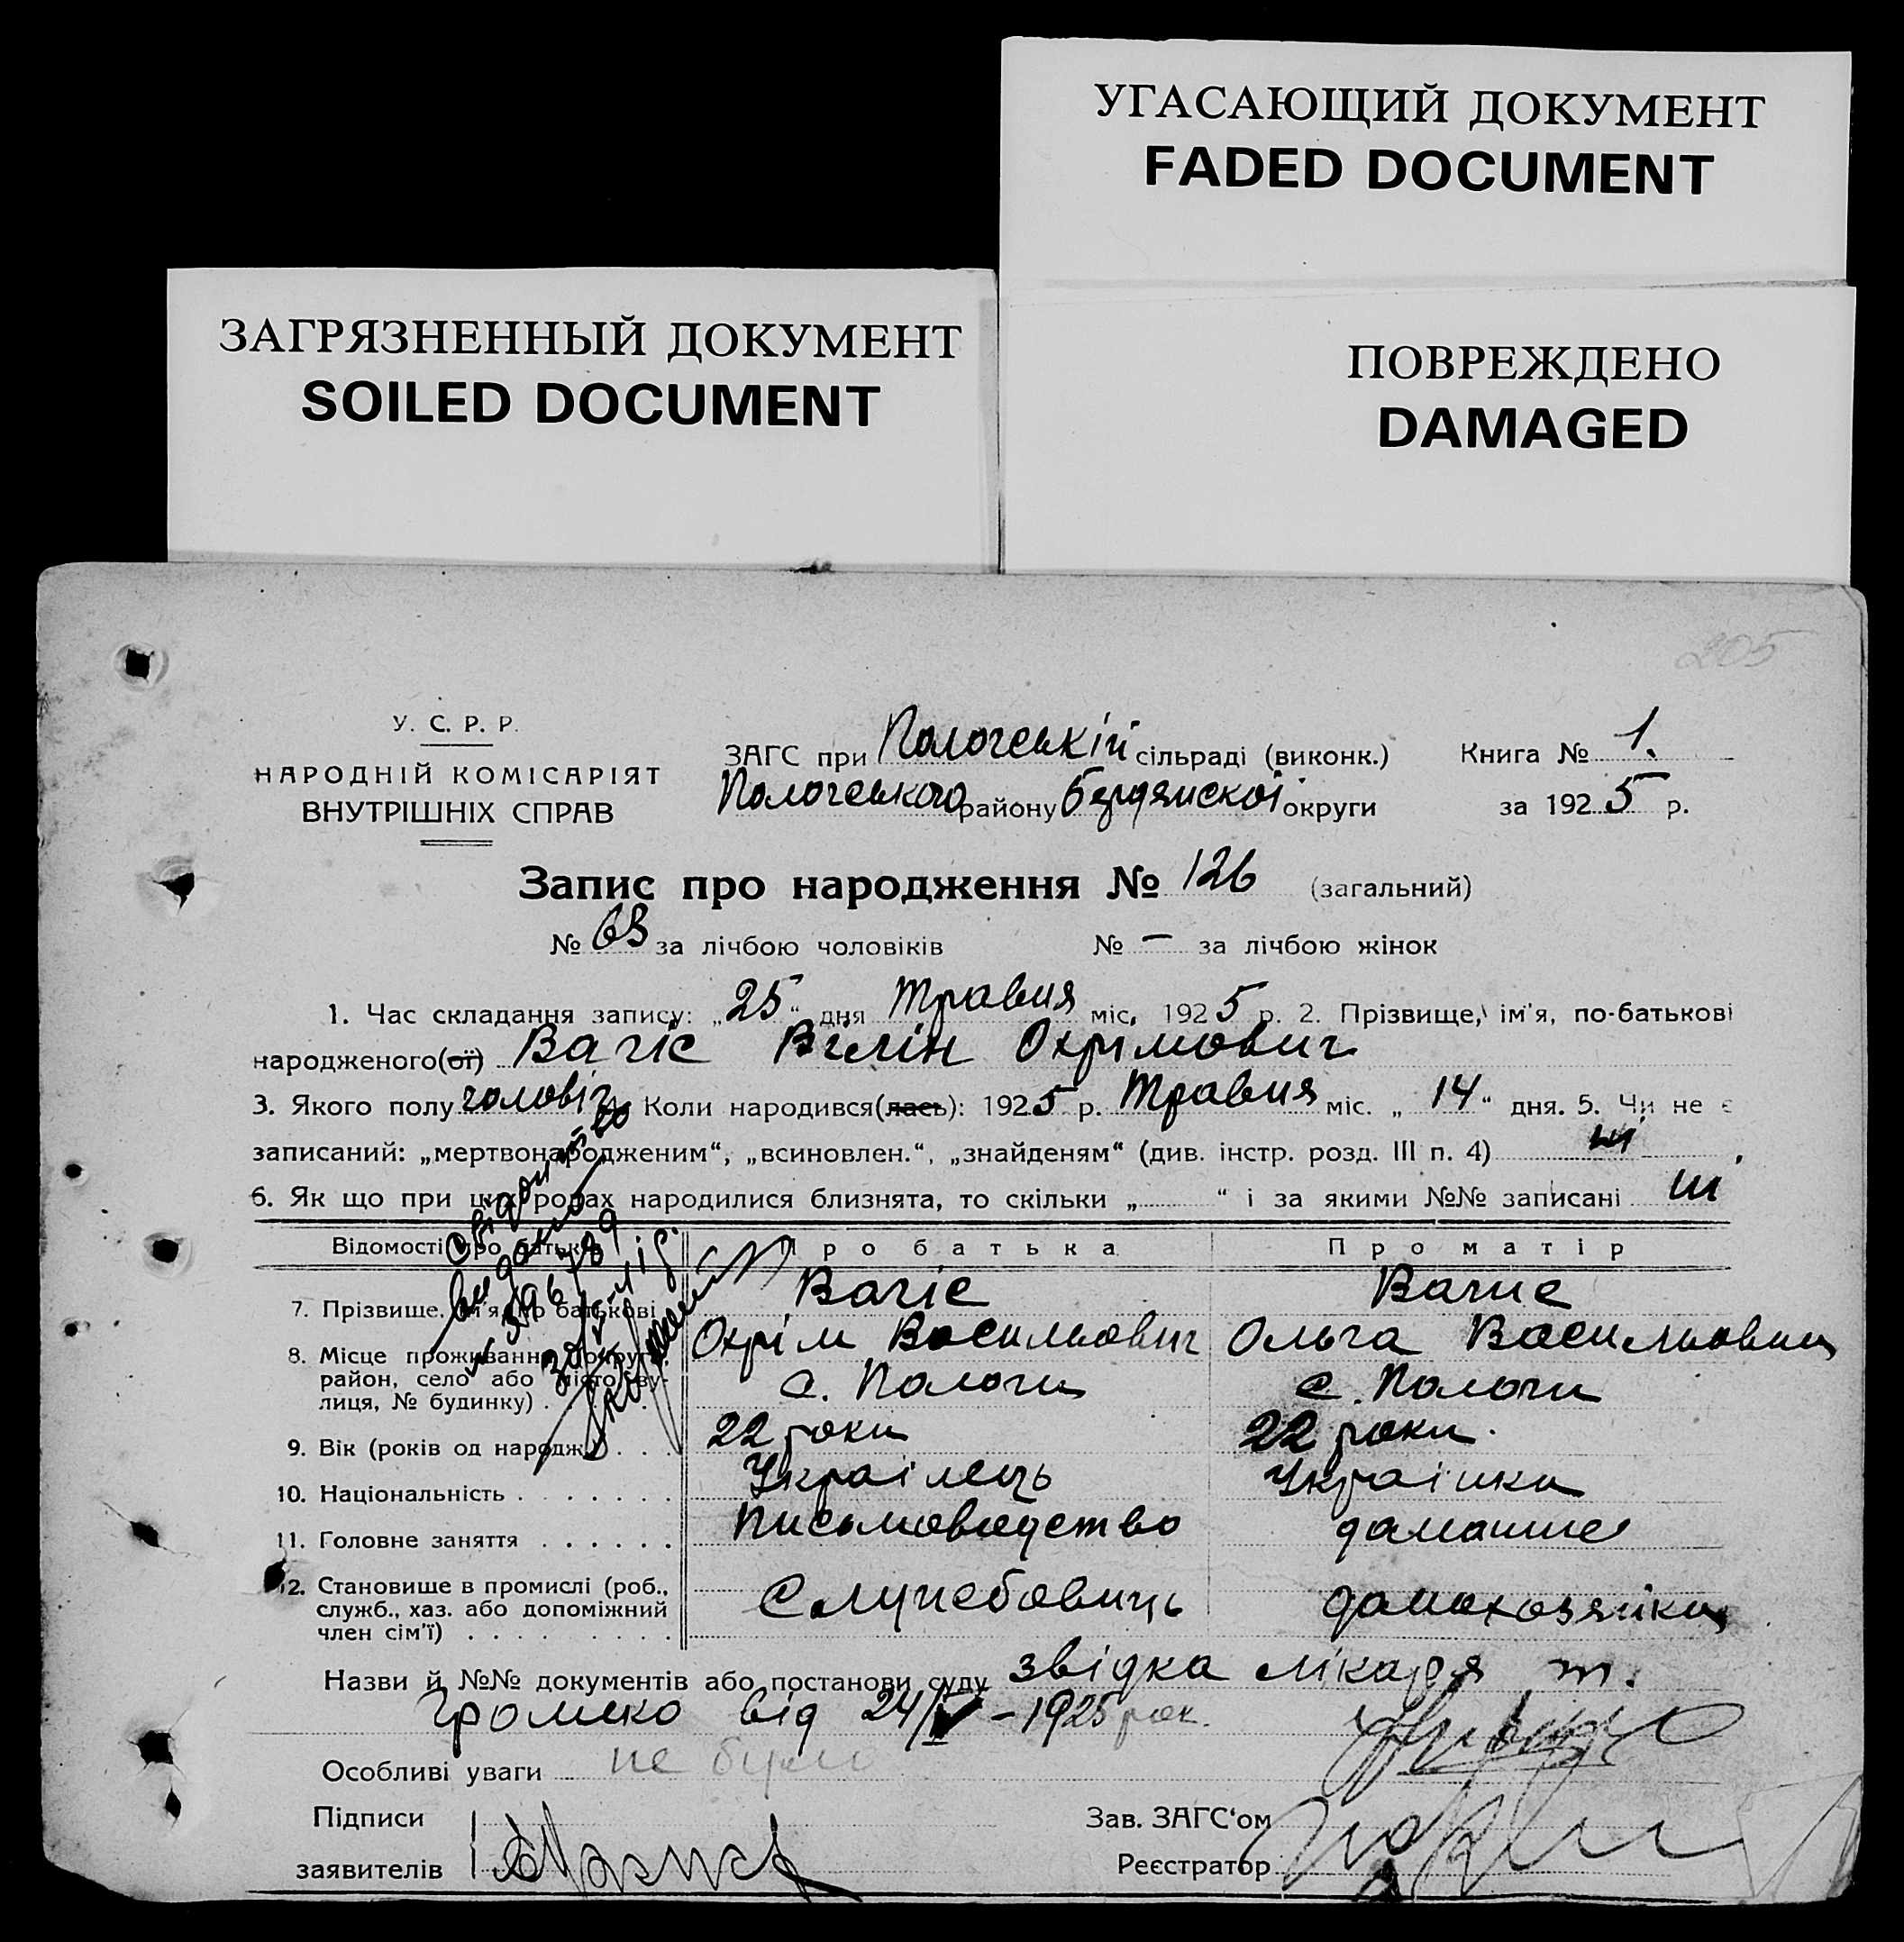 УГАСАЮЩИЙ ДОКУМЕНТ
FADED DOCUMENT
ЗАГРЯЗНЕННЫЙ ДОКУМЕНТ
SOILED DOCUMENT
ПОВРЕЖДЕНО
DAMAGED
205
У. С. Р. Р.
НАРОДНІЙ КОМІСАРІЯТ
ВНУТРІШНІХ СПРАВ
ЗАГС при Пологській сільраді (виконк.) Книга № 1.
Пологського району Бердянскої округи за 1925 р.
Запис про народження № 126 (загальний)
№ 63 за лічбою чоловіків № — за лічбою жінок
1. Час складання запису: „25“ дня Травня міс. 1925 р. 2. Прізвище, ім'я, по-батькові
народженого(ої) Вагіс Вілін Охрімович
3. Якого полу чоловіч. 4. Коли народився(лась): 1925 р. Травня міс. „14“ дня. 5. Чи не є
записаний: „мертвонародженим“, „всиновлен.“, „знайденям“ (див. інстр. розд. III п. 4) ні
6. Як що при цих родах народилися близнята, то скільки „ “ і за якими №№ записані ні
Відомості про батьків Про батька Про матір
7. Прізвище, ім'я, по батькові Вагіс Вагис
Охрім Васильович Ольга Васильовна
8. Місце проживання (округа, район, село або місто, вулиця, № будинку) . с. Пологи с. Пологи
9. Вік (років од народж.) . . . 22 роки 22 роки.
10. Національність . . . . . . . Украінець Украінка
11. Головне заняття . . . . . . Письмоводство домашнє
12. Становище в промислі (роб., служб., хаз. або допоміжний член сім'ї) . . . . . . . . . Служебовиць домохозяйка
Назви й №№ документів або постанови суду звідка лікаря т.
Громеко від 24/V – 1925 рок.
Особливі уваги не було
Підписи
заявителів
Зав. ЗАГС‘ом
Реєстратор